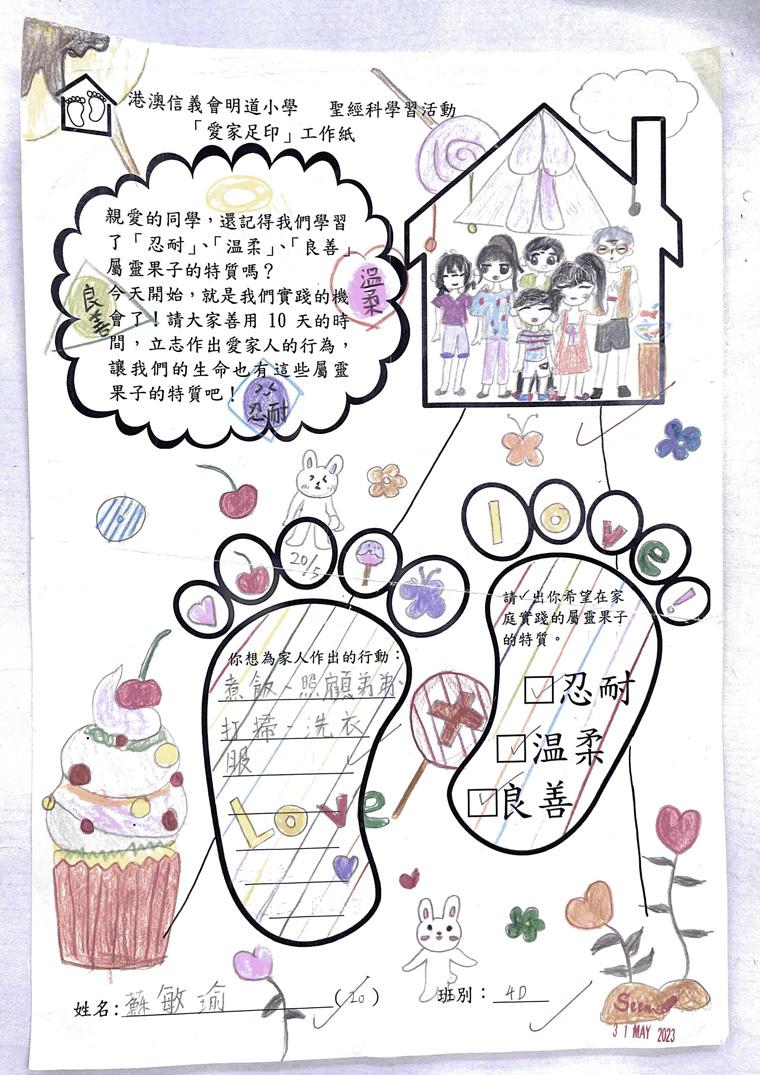 港澳信義會明道小學 聖經科學習活動
「愛家足印」工作紙
親愛的同學，還記得我們學習
了「忍耐」、「溫柔」、「良善」
屬靈果子的特質嗎？
今天開始，就是我們實踐的機
會了！請大家善用 10 天的時
間，立志作出愛家人的行為，
讓我們的生命也有這些屬靈
果子的特質吧！
良善
溫柔
忍耐
20/5
love!
請✓出你希望在家
庭實踐的屬靈果子
的特質。
☑忍耐
☑溫柔
☑良善
你想為家人作出的行動：
煮飯、照顧弟弟、
打掃、洗衣
服
Love
姓名：蘇敏瑜（20）
班別：4D
Seen
31 MAY 2023